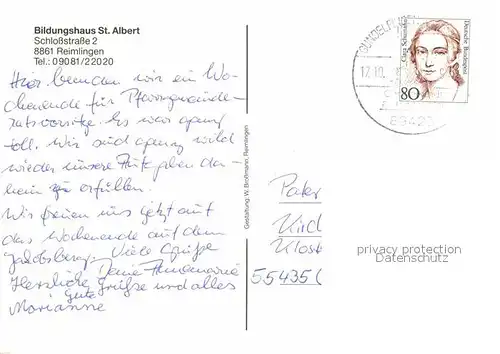 Bildungshaus St. Albert
Schloßstraße 2
8861 Reimlingen
Tel.: 09081/22020
Hier beenden wir ein Wo-
chenende für Pfarrgemeinde-
ratsvorsitz. Es war
toll. Wir sind wild
wieder unsere daheim
zu erfüllen.
Wir freuen uns jetzt auf
das Wochenende auf dem
Jakobsberg. Viele Grüße
Deine Annemarie
Herzliche Grüße und alles
Gute
Marianne
Gestaltung: W. Broßmann, Reimlingen
GUNDELFINGEN
12.10.
89423
Clara Schumann
Deutsche Bundespost
80
Pater
Kirch
Klost
55435
privacy protection
Datenschutz